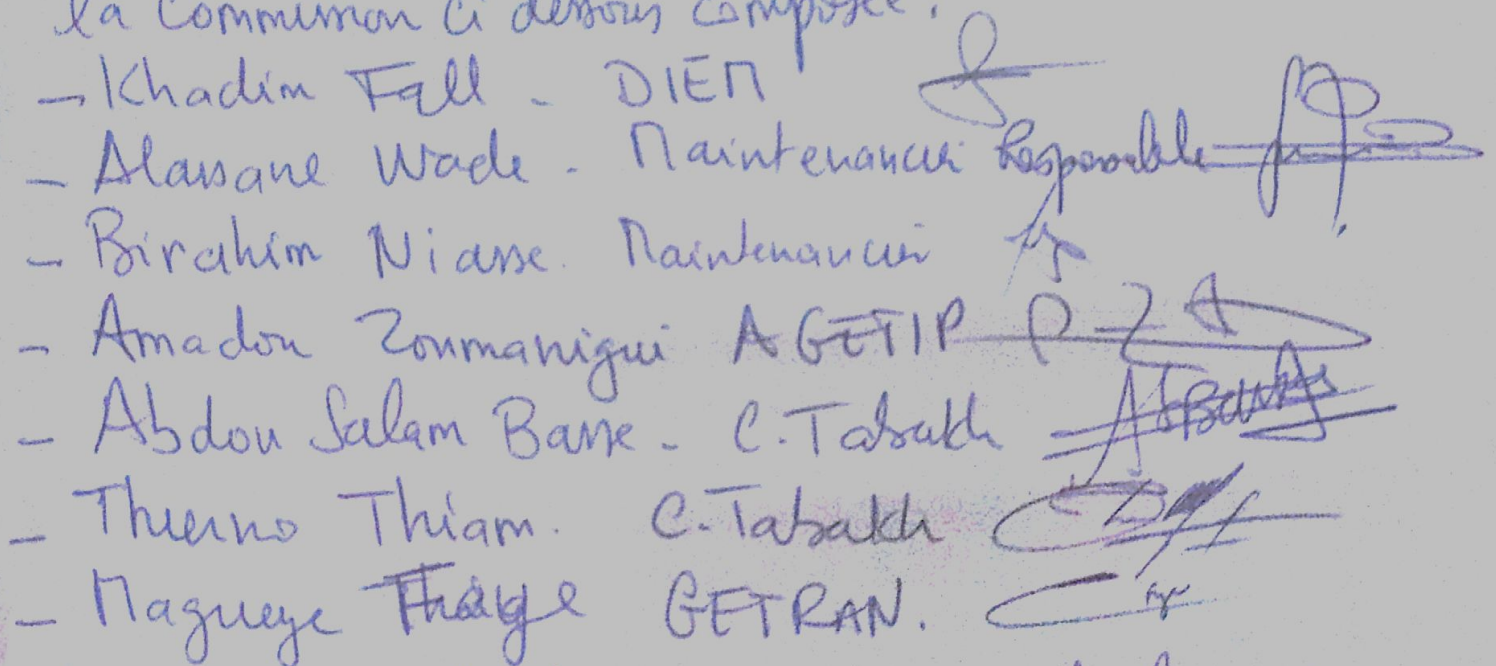 la Commission ci dessous composée.
- Khadim Fall - DIEM
- Alassane Wade - Maintenancier Responsable
- Birahim Niasse. Maintenancier
- Amadou Zoumanigui AGETIP
- Abdou Salam Basse - C. Tabakh
- Thierno Thiam. C. Tabakh
- Magueye GETRAN.